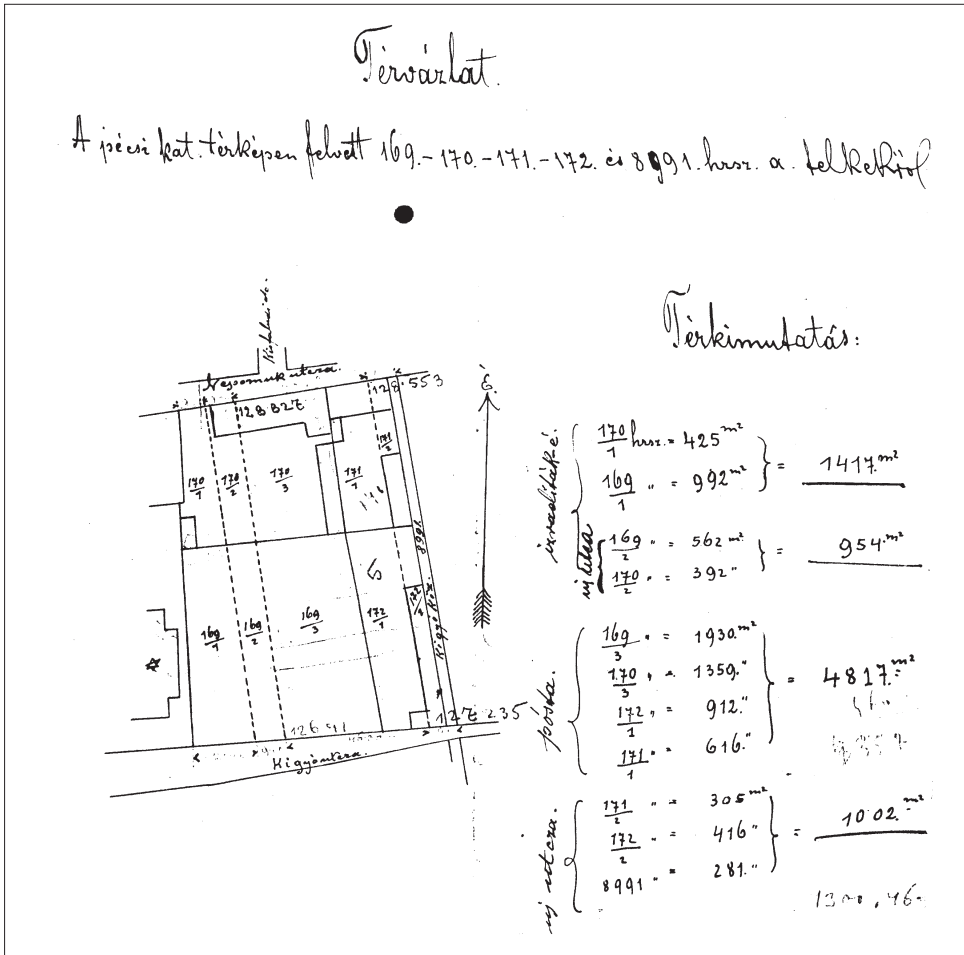 Térvázlat.
A pécsi kat. térképen felvett 169.-170.-171.-172. és 8991. hrsz. a. telkekről
Térkimutatás:
Nepomuk utcza.
128.553
128 827
É.
170/1
170/2
170/3
171/1
171/2
8991.
169/1
169/2
169/3
172/1
172/2
Kigyó köz.
127 235
Kigyóutcza.
izraeliták-é.
170/1 hrsz. = 425 m²
169/1 " = 992 m²
= 1417. m²
új utcza
169/2 " = 562 m²
170/2 " = 392 "
= 954. m²
pósta.
169/3 " = 1930. m²
170/3 " = 1359. "
172/1 " = 912. "
171/1 " = 616. "
= 4817. m²
új utcza.
171/2 " = 305 m²
172/2 " = 416 "
8991 " = 281. "
= 1002. m²